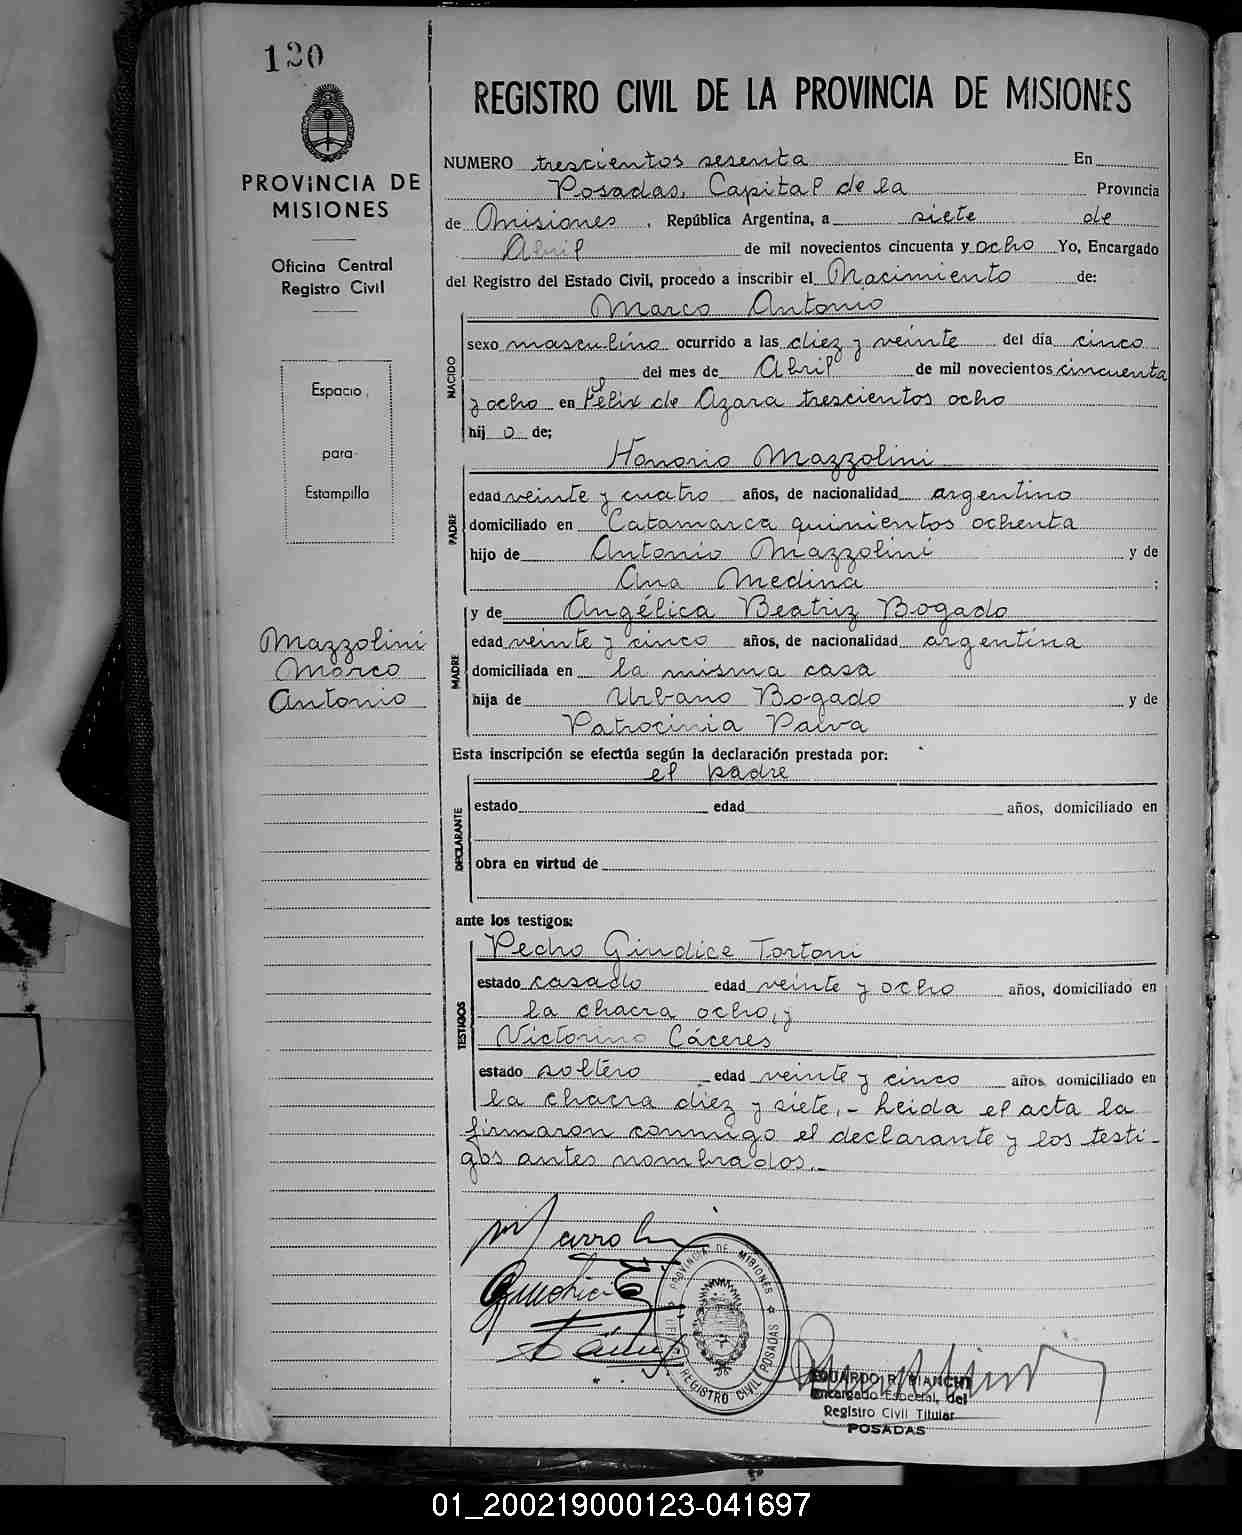 120
REGISTRO CIVIL DE LA PROVINCIA DE MISIONES
PROVINCIA DE
MISIONES
Oficina Central
Registro Civil
Espacio
para
Estampilla
Mazzolini
Marco
Antonio
NUMERO trescientos sesenta En
Posadas, Capital de la Provincia
de Misiones, República Argentina, a siete de
Abril de mil novecientos cincuenta y ocho Yo, Encargado
del Registro del Estado Civil, procedo a inscribir el Nacimiento de:
Marco Antonio
NACIDO
sexo masculino ocurrido a las diez y veinte del día cinco
del mes de Abril de mil novecientos cincuenta
y ocho en Félix de Azara trescientos ocho
hij o de;
Honorio Mazzolini
PADRE
edad veinte y cuatro años, de nacionalidad argentino
domiciliado en Catamarca quinientos ochenta
hijo de Antonio Mazzolini y de
Ana Medina ;
y de Angélica Beatriz Bogado
MADRE
edad veinte y cinco años, de nacionalidad argentina
domiciliada en la misma casa
hija de Urbano Bogado y de
Patrocinia Paiva
Esta inscripción se efectúa según la declaración prestada por:
el padre
DECLARANTE
estado edad años, domiciliado en
obra en virtud de
ante los testigos:
Pedro Giudice Tortoni
TESTIGOS
estado casado edad veinte y ocho años, domiciliado en
la chacra ocho, y
Victorino Cáceres
estado soltero edad veinte y cinco años, domiciliado en
la chacra diez y siete.- Leida el acta la
firmaron conmigo el declarante y los testi-
gos antes nombrados.-
PROVINCIA DE MISIONES
REGISTRO CIVIL POSADAS
EDUARDO R. BIANCHI
Encargado Especial, del
Registro Civil Titular
POSADAS
01_200219000123-041697